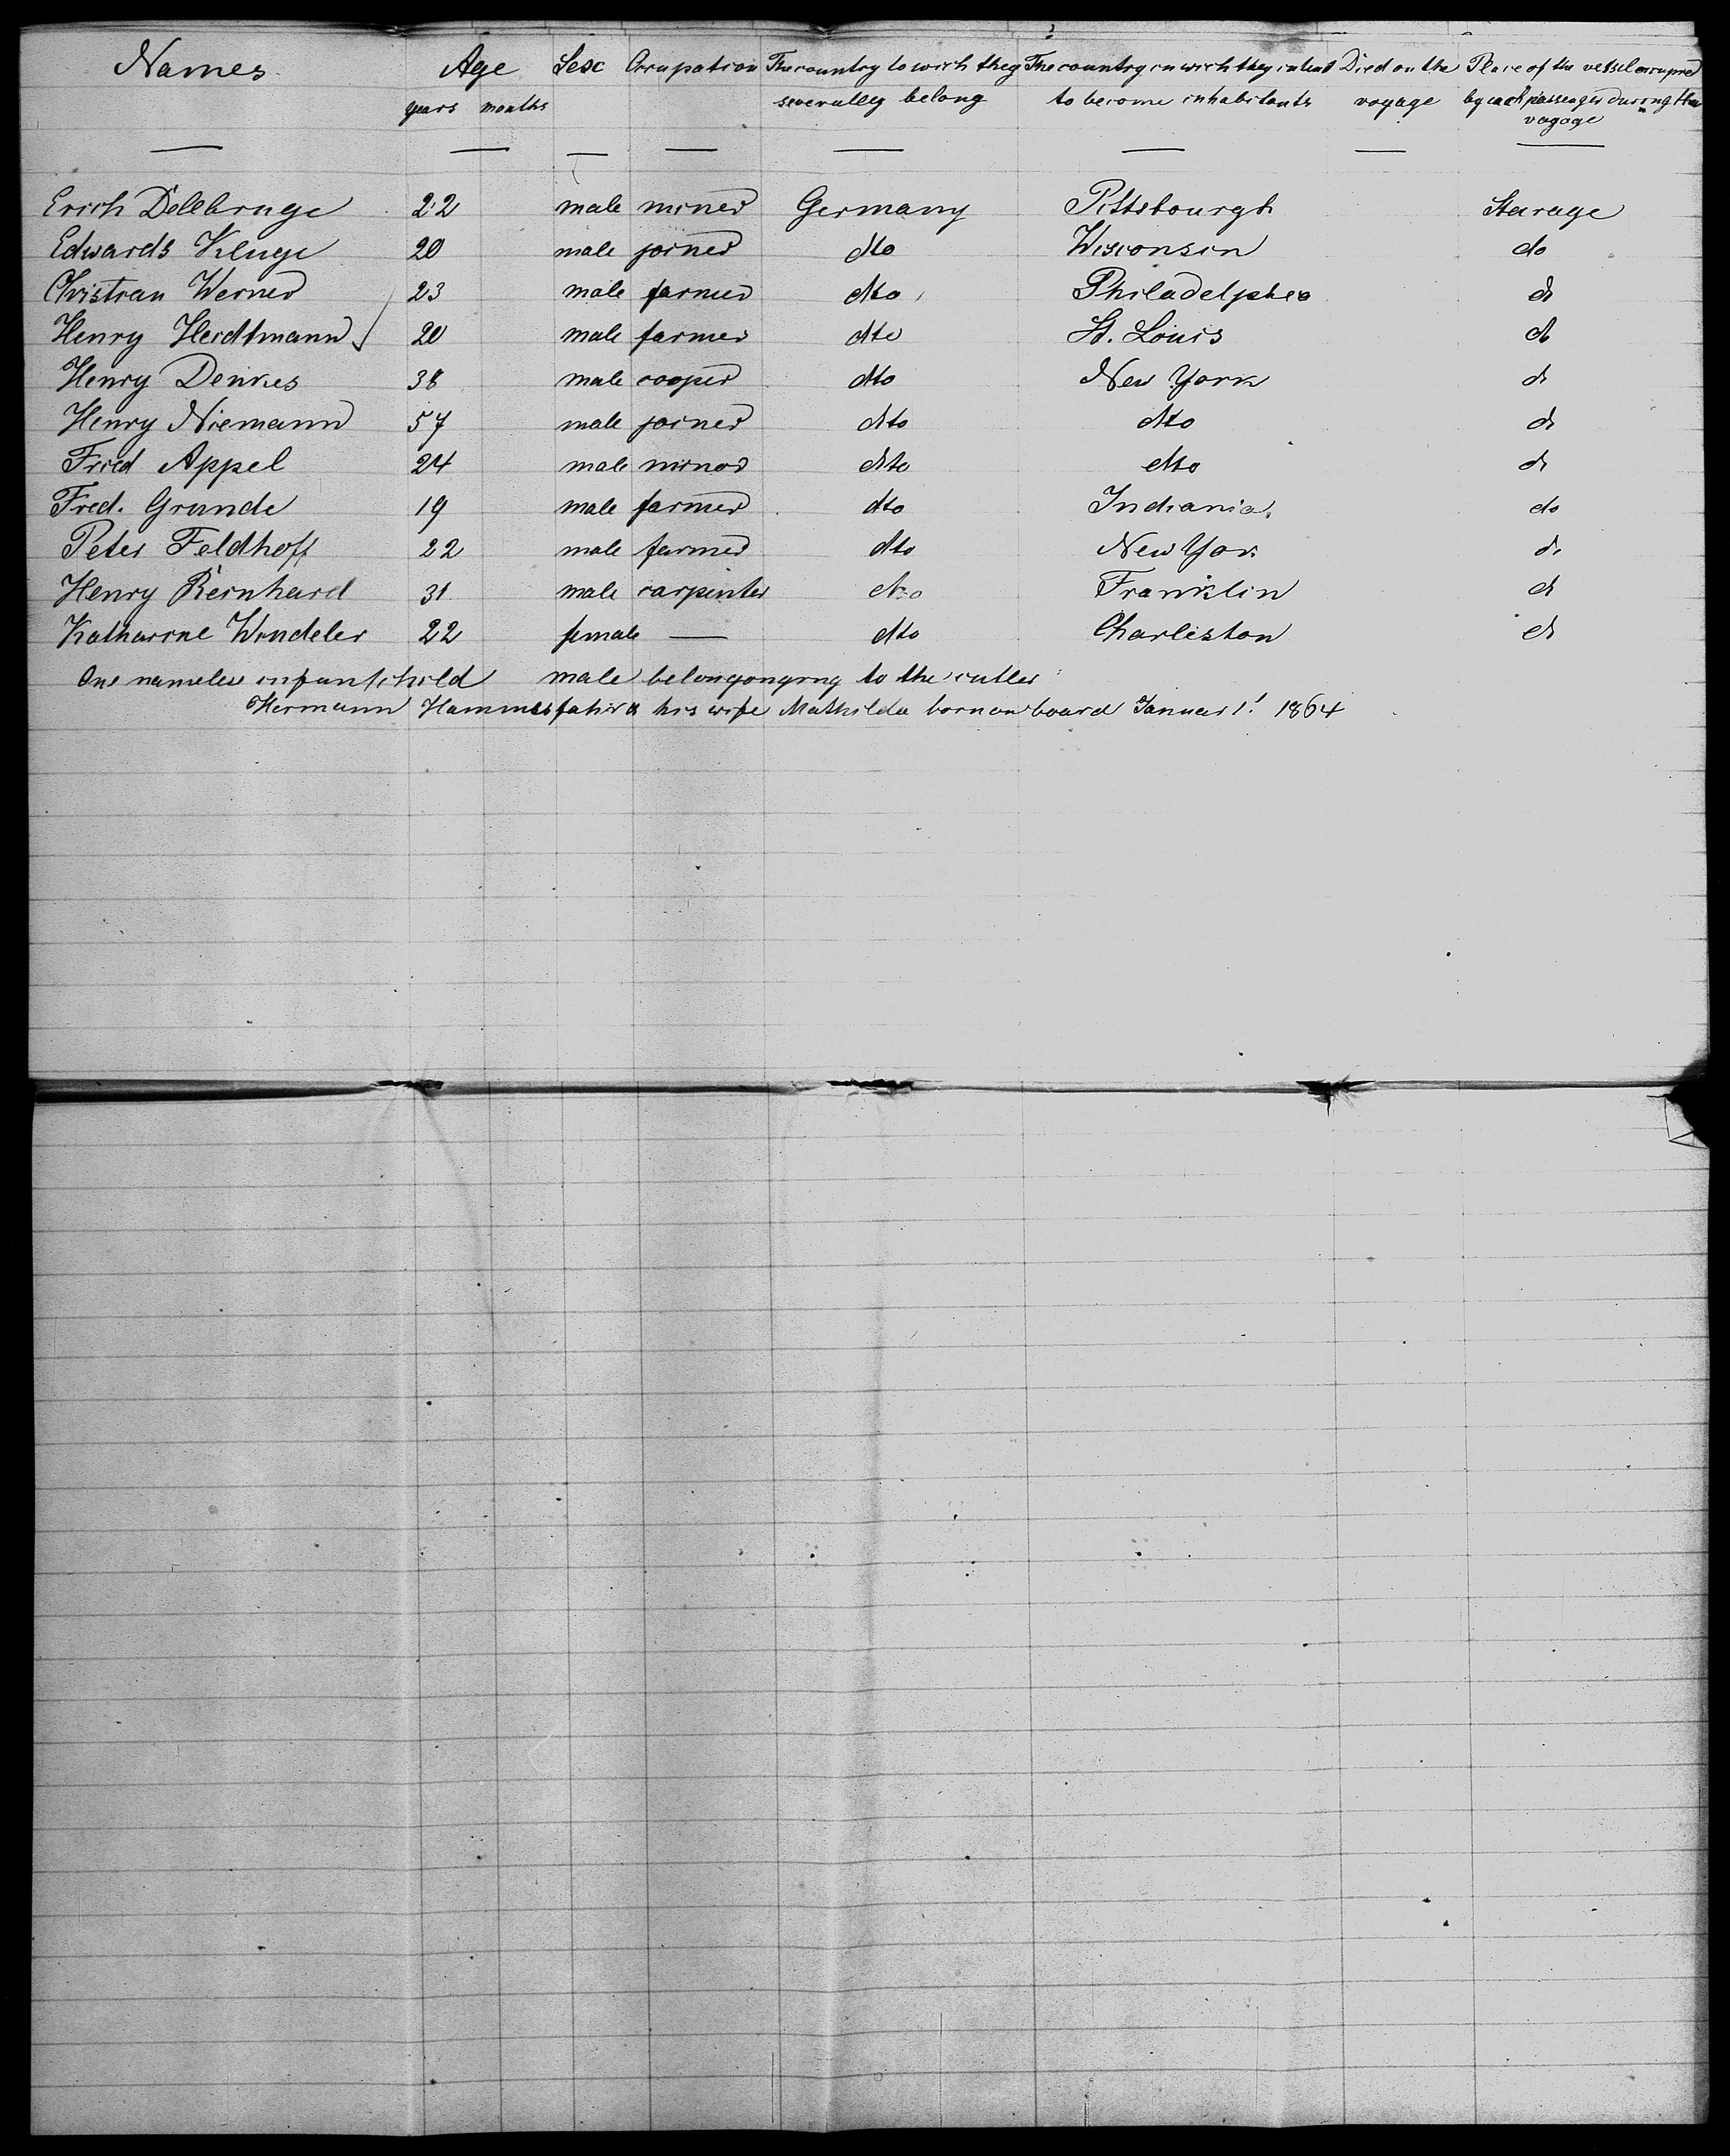 Names Age Sex Occupation The country to wich they The country in wich they intend Died on the Place of the vessel occupied
years months severalley belong to become inhabitants voyage by each passenger during the
voyage
Erich Dellbrugge 22 male miner Germany Pittsbourgh Stearage
Edwards Kluge 20 male joiner dto Wisconsin do
Christian Werner 23 male farmer dto Philadelphia do
Henry Herdtmann 20 male farmer dto St. Louis do
Henry Denkes 38 male cooper dto New York do
Henry Niemann 57 male joiner dto dto do
Fried Appel 24 male miner dto dto do
Fred. Grunde 19 male farmer dto Indiania. do
Peter Feldhoff 22 male farmer dto New York do
Henry Bernhard 31 male carpenter dto Franklin do
Katharine Windeler 22 female — dto Charleston do
One nameless infant child male belongonging to the cutler
Hermann Hammesfahr & his wife Mathilda born on board Januar 1! 1864